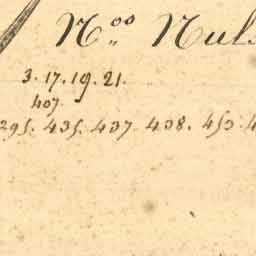 N.ºº Nuls
3. 17. 19. 21.
407
295. 435. 437 438. 453. 4